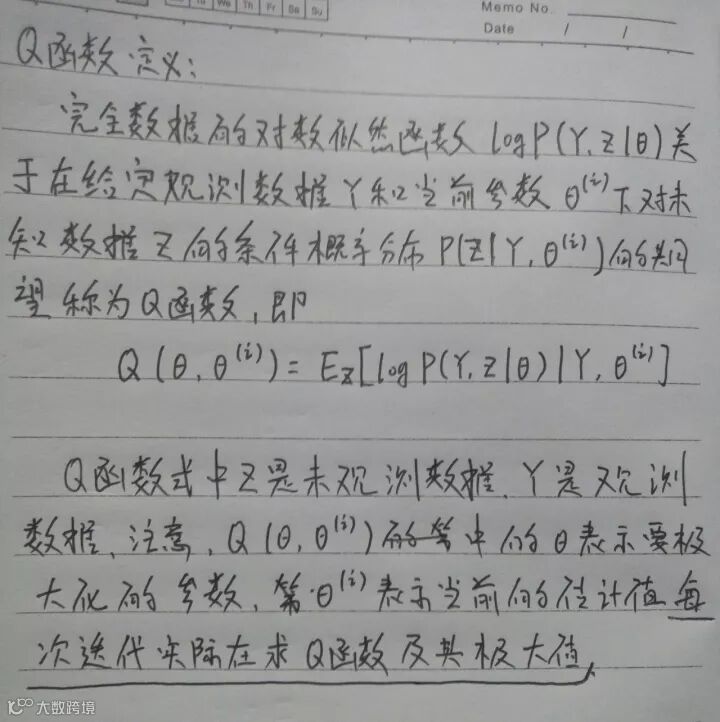 Tu We Th Fr Sa Su
Memo No.
Date / /
Q函数定义:
完全数据的对数似然函数 logP(Y,Z|θ)关
于在给定观测数据Y和当前参数θ^(i)下对未
知数据Z的条件概率分布P(Z|Y,θ^(i))的期
望称为Q函数,即
Q(θ,θ^(i))=E_Z[logP(Y,Z|θ)|Y,θ^(i)]
Q函数式中Z是未观测数据、Y是观测
数据、注意,Q(θ,θ^(i))的中的θ表示要极
大化的参数,第θ^(i)表示当前的估计值每
次迭代实际在求Q函数及其极大值,
大数跨境